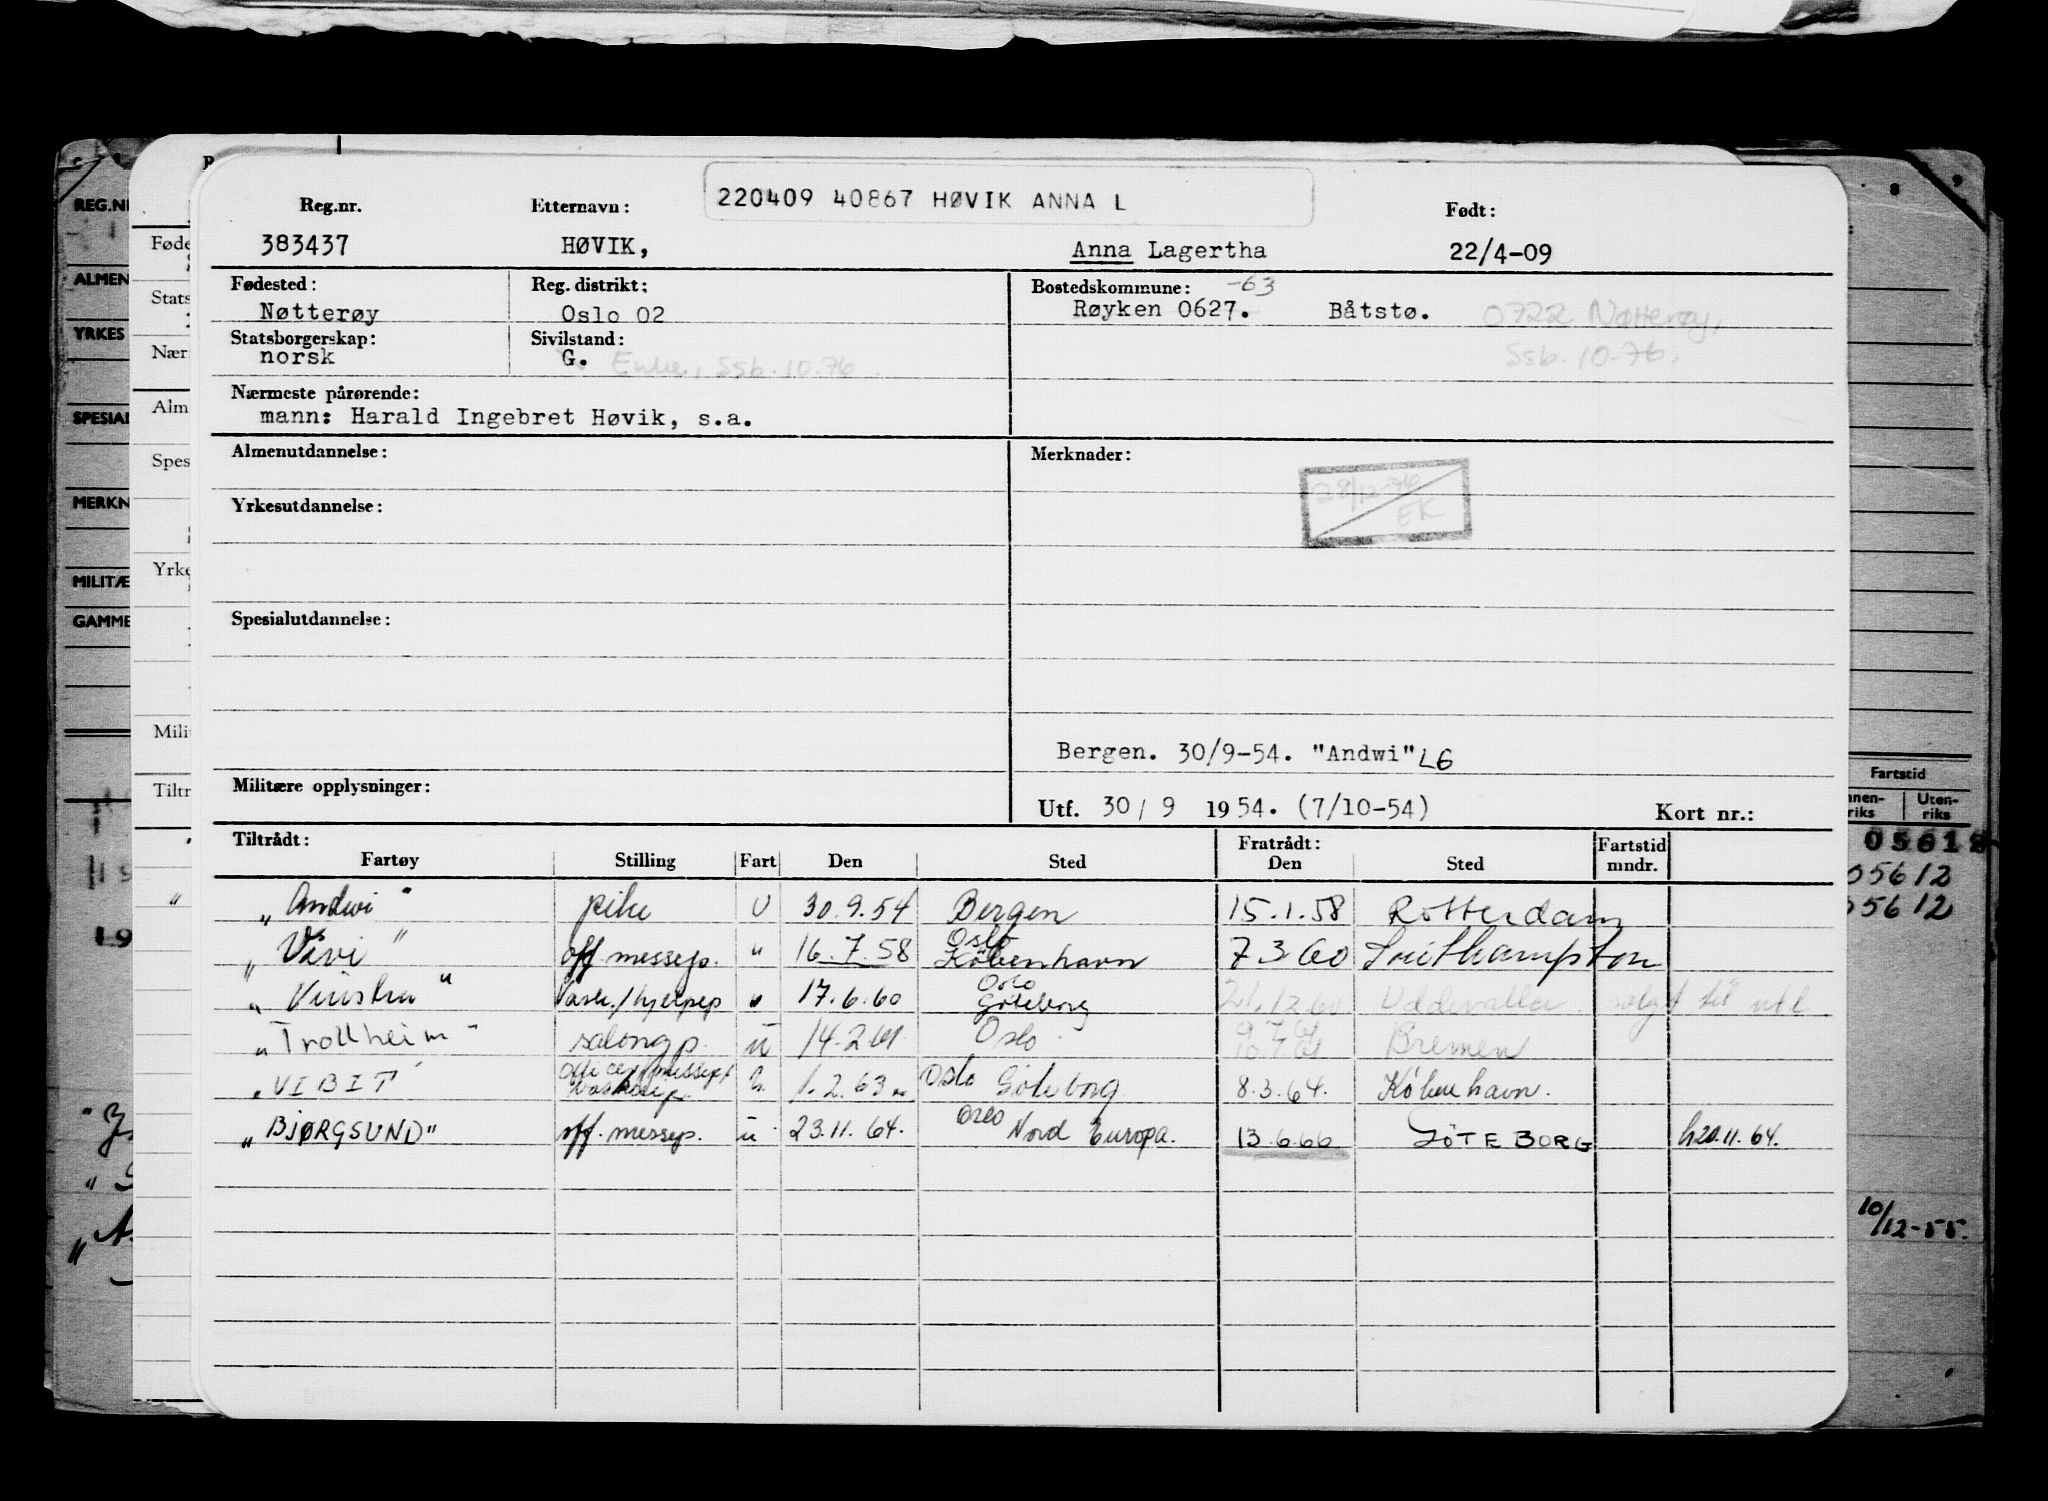 220409 40867 HØVIK ANNA L
Reg.nr. Etternavn: Født:
383437 HØVIK, Anna Lagertha 22/4-09
Fødested: Reg. distrikt: Bostedskommune: -63
Nøtterøy Oslo 02 Røyken 0627. Båtstø. 0722 Nøtterøy,
Statsborgerskap: Sivilstand: Ssb. 10-76.
norsk G. Enke, Ssb. 10.76.
Nærmeste pårørende:
mann: Harald Ingebret Høvik, s.a.
Almenutdannelse: Merknader:
28/12-76
EK
Yrkesutdannelse:
Spesialutdannelse:
Bergen. 30/9-54. "Andwi" LG
Militære opplysninger:
Utf. 30/9 1954. (7/10-54) Kort nr.:
Tiltrådt: Fratrådt: Fartstid
Fartøy Stilling Fart Den Sted Den Sted mndr.
„Andwi" pike U 30.9.54 Bergen 15.1.58 Rotterdam
„Vivi" off. messep. " 16.7.58 Oslo København 7 3 60 Southampton
„Vinstra" 17.6.60 Oslo Göteborg 21.12.60 Uddevalla solgt til utl
„Trollheim" salongp. u 14.2.61 Oslo 9 7 61 10.7.61 Bremen
„VIBIT" 1.2.63 Oslo Göteborg 8.3.64. København.
„BJØRGSUND" off. messep. u 23.11.64. Oslo Nord Europa. 13.6.66 GÖTEBORG h20.11.64.
REG.NR
ALMEN
YRKES
SPESIAL
MERKN
MILITÆ
GAMME
Føde
Stats
Nær
Alm
Spes
Yrke
Mili
Tiltr
8 9
Fartstid
Uten-
riks riks
05612
05612
10/12-55.